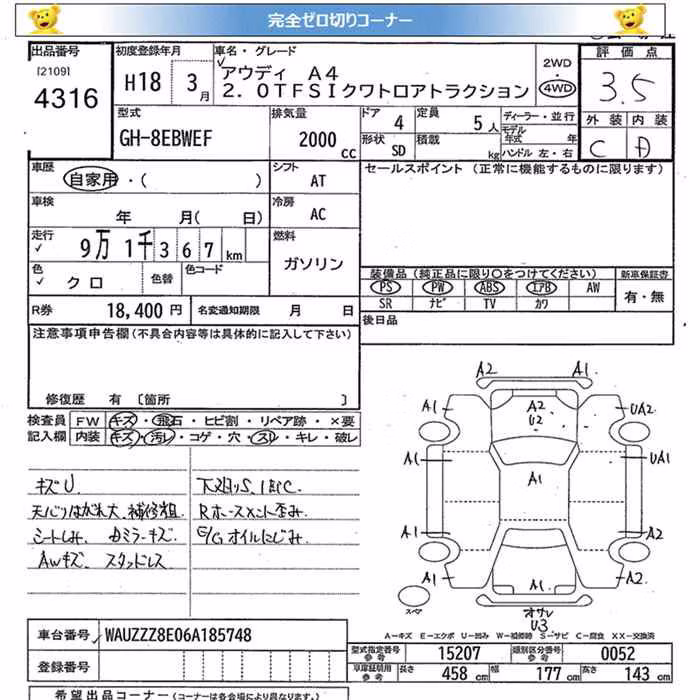 完全ゼロ切りコーナー
出品番号 初度登録年月 車名・グレード 評価点
[2109] 4316 H18 3月 アウディ A4 2WD・4WD 3.5
2.0TFSIクワトロアトラクション
型式 排気量 ドア 4 定員 5人 ディーラー・並行 外装 内装
GH-8EBWEF 2000cc 形状 SD 積載 kg モデル年式 年 ハンドル 左・右 C
車歴 自家用・( ) シフト AT セールスポイント (正常に機能するものに限ります)
車検 年 月( 日) 冷房 AC
走行 9万1千367km 燃料 ガソリン
色 クロ 色替 色コード
装備品(純正品に限り〇をつけてください) 新車保証書
PS PW ABS エアB AW 有・無
SR ナビ TV カワ
R券 18,400円 名変通知期限 月 日 後日品
注意事項申告欄(不具合内容等は具体的に記入して下さい)
修復歴 有 [箇所 ]
検査員 FW キズ・飛石・ヒビ割・リペア跡・×要
記入欄 内装 キズ・汚レ・コゲ・穴・スレ・キレ・破レ
キズU 下廻りS、
天バリはがれ大、補修粗 Rホースメント歪み
シートしみ、 ミラーキズ E/Gオイルにじみ
AWキズ、スタッドレス
A2 A1
A1 A2 U2 UA2
A1 A1 UA1
A1 A2
A1 A1 A2
スペア オサレ U3
A-キズ E-エクボ U-凹み W-補修跡 S-サビ C-腐食 XX-交換済
車台番号 WAUZZZ8E06A185748
型式指定番号 参考 15207 類別区分番号 参考 0052
登録番号 車庫証明用 参考 長さ 458cm 幅 177cm 高さ 143cm
希望出品コーナー